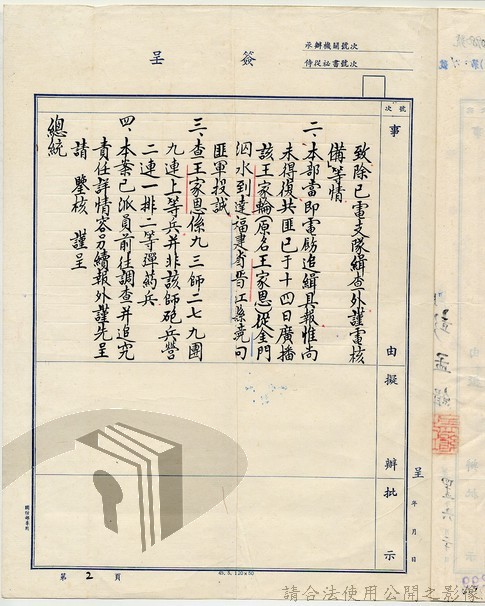 簽呈
承辦機關號次
侍從祕書號次
號次
事由
擬辦
批示
致除已電支隊緝查外謹電核
備等情
二、本部當即電飭追緝具報惟尚
未得復共匪已于十四日廣播
該王家輪(原名王家恩)從金門
泅水到達福建省晋江縣境向
匪軍投誠
三、查王家恩係九三師二七九團
九連上等兵并非該師砲兵營
二連一排二等彈葯兵
四、本案已派員前往調查并追究
責任詳情容另續報外謹先呈
請 鑒核 謹呈
總統
呈 年 月 日
第2頁
49. 5. 120×50
請合法使用公開之影像